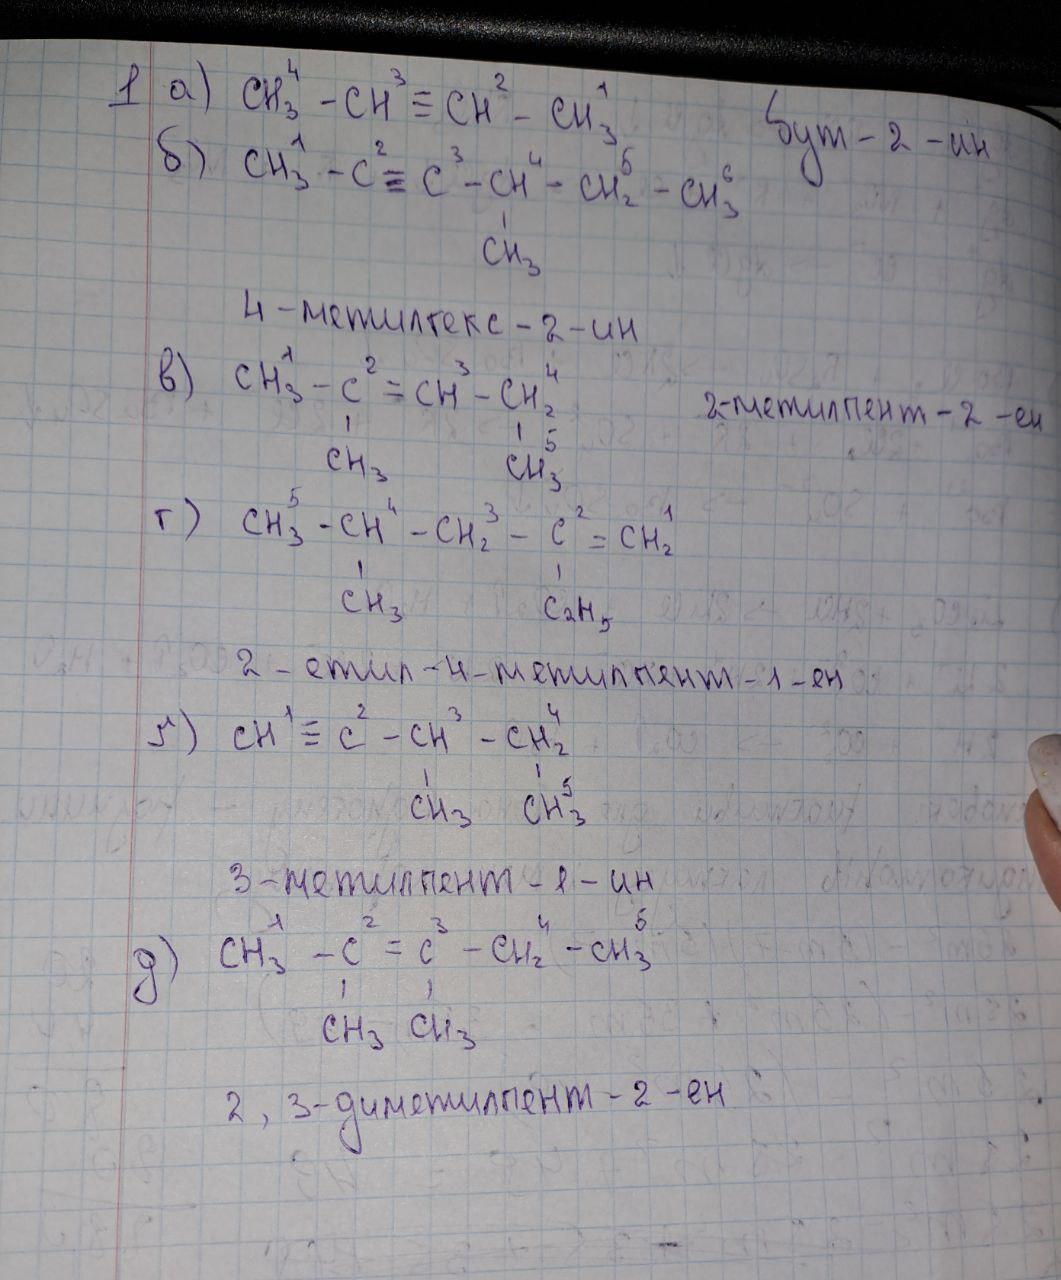 1 а) CH₃⁴ - CH³ ≡ CH² - CH₃¹ бут - 2 - ин
б) CH₃¹ - C² ≡ C³ - CH⁴ - CH₂⁵ - CH₃⁶
CH₃
4 - метилгекс - 2 - ин
в) CH₃¹ - C² = CH³ - CH₂⁴
2-метилпент - 2 - ен
CH₃ CH₃⁵
г) CH₃⁵ - CH⁴ - CH₂³ - C² = CH₂¹
CH₃ C₂H₅
2 - етил - 4 - метилпент - 1 - ен
ґ) CH¹ ≡ C² - CH³ - CH₂⁴
CH₃ CH₃⁵
3 - метилпент - 1 - ин
д) CH₃¹ - C² = C³ - CH₂⁴ - CH₃⁵
CH₃ CH₃
2, 3 - диметилпент - 2 - ен